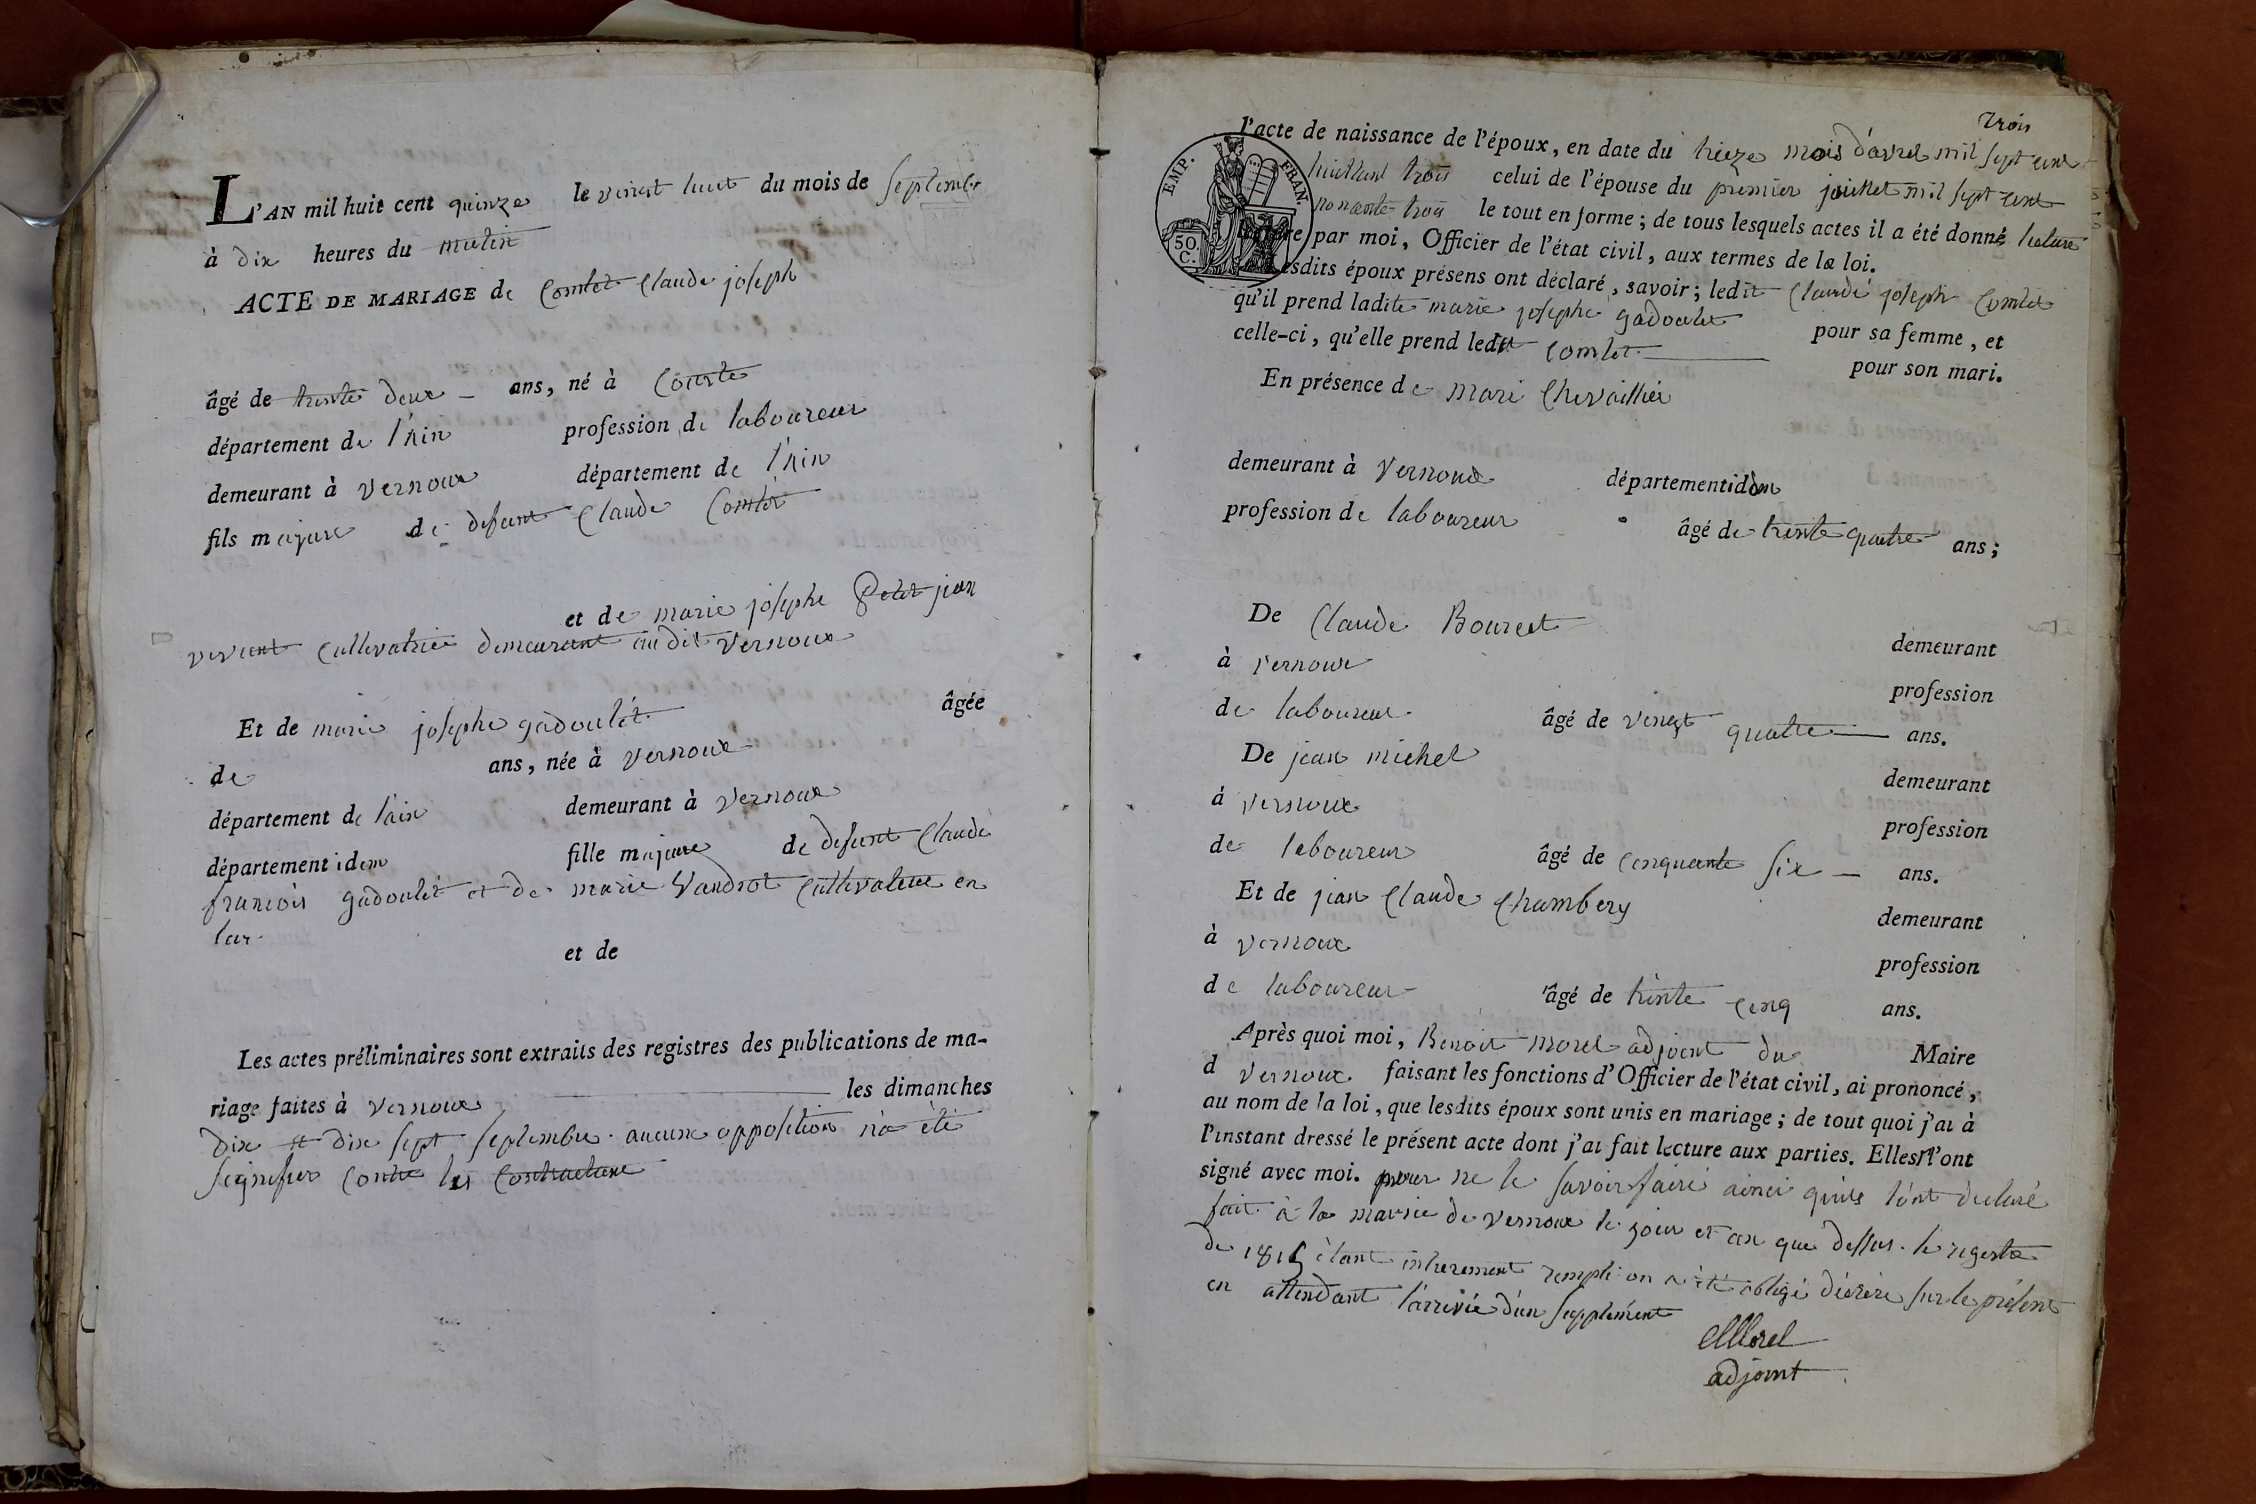 L'AN mil huit cent quinze le vingt huit du mois de septembre
à dix heures du matin
ACTE DE MARIAGE de Comtet Claude joseph
âgé de trente deux ans, né à Courte
département de l'Ain profession de laboureur
demeurant à vernoux département de l'Ain
fils majure de defunt Claude Comtet
et de marie josephe Petit jean
vivant cultivatrice demeurant au dit vernoux
Et de marie josephe gadoulet âgée
de ans, née à vernoux
département de l'ain demeurant à vernoux
département idem fille majure de defunt Claude
francois gadoulet et de marie Vaudrot cultivateur en
et de
Les actes préliminaires sont extraits des registres des publications de ma-
riage faites à vernoux les dimanches
dix et dix sept septembre. aucune opposition n'a été
signifier contre les contractans
trois
l'acte de naissance de l'époux, en date du treize mois d'avril mil sept cent
huittant trois celui de l'épouse du premier juillet mil sept cent
nonante trois le tout en forme; de tous lesquels actes il a été donné lecture
EMP. FRAN. 50. C.
par moi, Officier de l'état civil, aux termes de la loi.
Lesdits époux présens ont déclaré, savoir; ledit Claude joseph Comtet
qu'il prend ladite marie josephe gadoulet pour sa femme, et
celle-ci, qu'elle prend ledit Comtet pour son mari.
En présence de marie Chevaillier
demeurant à vernoux département idem
profession de laboureur âgé de trente quatre ans;
De Claude Bouret demeurant
à vernoux profession
de laboureur âgé de vingt quatre ans.
De jean michel demeurant
à vernoux profession
de laboureur âgé de cinquante six ans.
Et de jean Claude Chambery demeurant
à vernoux profession
de laboureur âgé de trinte cinq ans.
Après quoi moi, Benoit morel adjoint du Maire
d vernoux faisant les fonctions d'Officier de l'état civil, ai prononcé,
au nom de la loi, que lesdits époux sont unis en mariage; de tout quoi j'ai à
l'instant dressé le présent acte dont j'ai fait lecture aux parties. Elles n'l'ont
signé avec moi. pour ne le savoir faire ainci qu'ils l'ont declaré
fait à la mairie de vernoux le jour et an que dessus. le registre
de 1815 étant entierement rempli on a été obligé d'écrire sur le présent
en attendant l'arrivée d'un supplément
Morel
adjoint